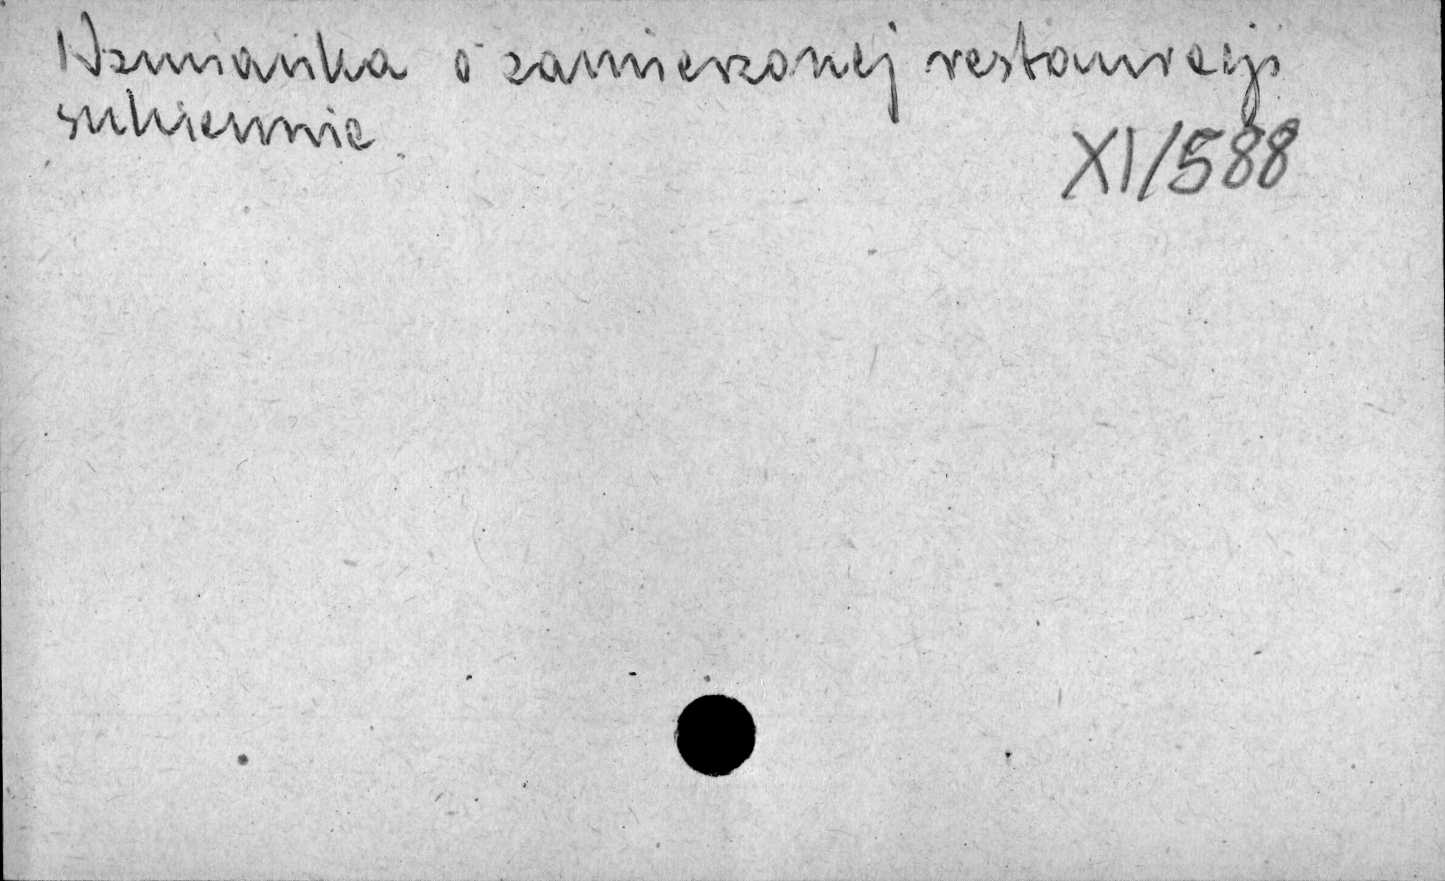 Wzmianka o zamierzonej restauracji
sukiennic.
XI/588